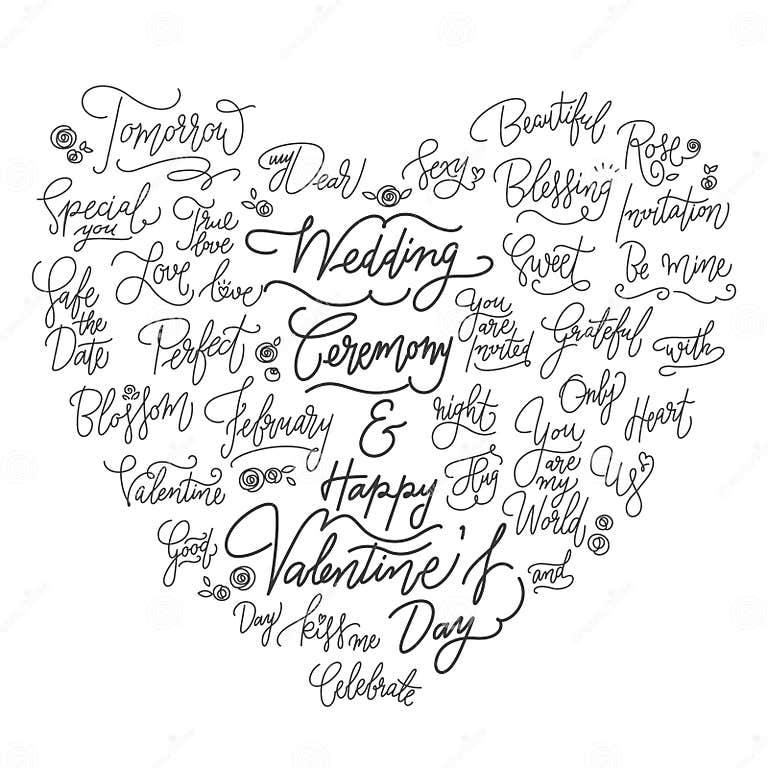 Tomorrow
my Dear
Sexy
Beautiful
Rose
Blessing
Invitation
Special
you
True
love
Wedding
Ceremony
&
Happy
Valentine's
Day
Sweet
Be mine
Safe
the
Date
Love
love
Perfect
You
are
Invited
Grateful
with
Blossom
February
night
Only
Heart
You
are
my
World
Valentine
Hug
Us
Good
and
Day
kiss me
Celebrate